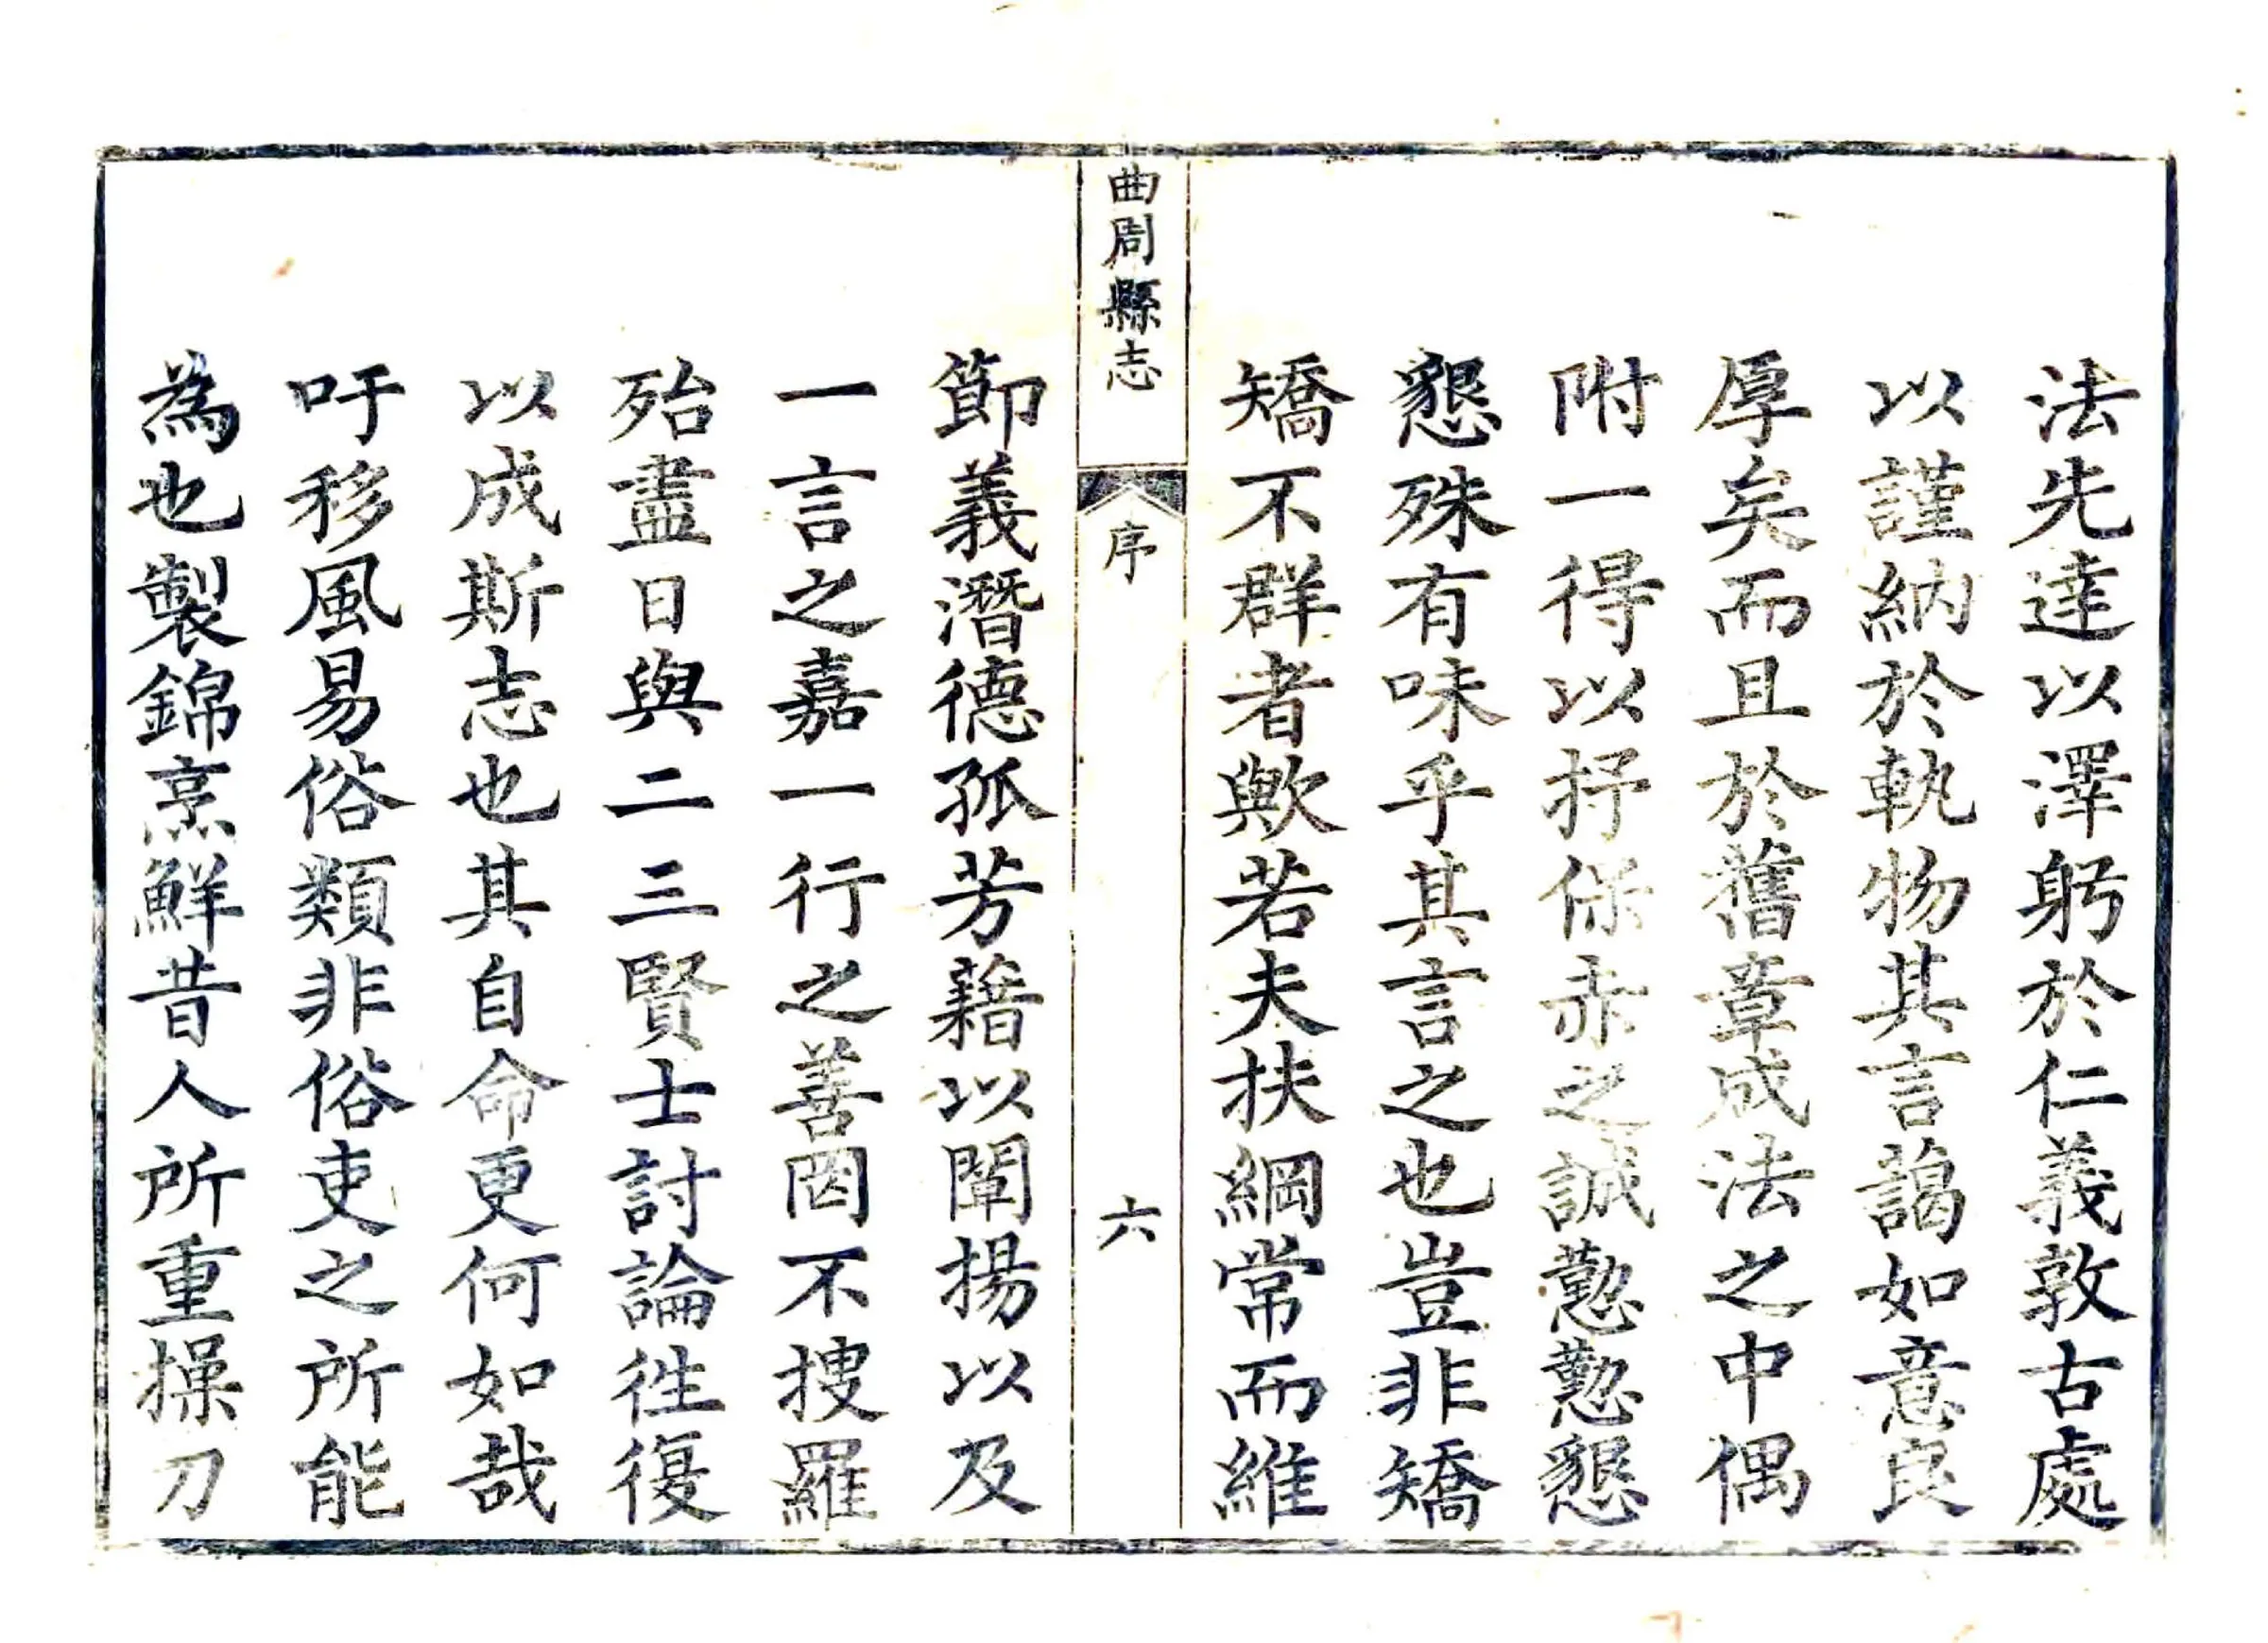 法先達以澤躬於仁義敦古處
以謹納於軌物其言藹如意良
厚矣而且於舊章成法之中偶
附一得以抒保赤之誠懃懃懇
懇殊有味乎其言之也豈非矯
矯不群者歟若夫扶綱常而維
曲周縣志
序
六
節義潛德孤芳藉以闡揚以及
一言之嘉一行之善罔不搜羅
殆盡日與二三賢士討論往復
以成斯志也其自命更何如哉
吁移風易俗類非俗吏之所能
為也製錦烹鮮昔人所重操刀